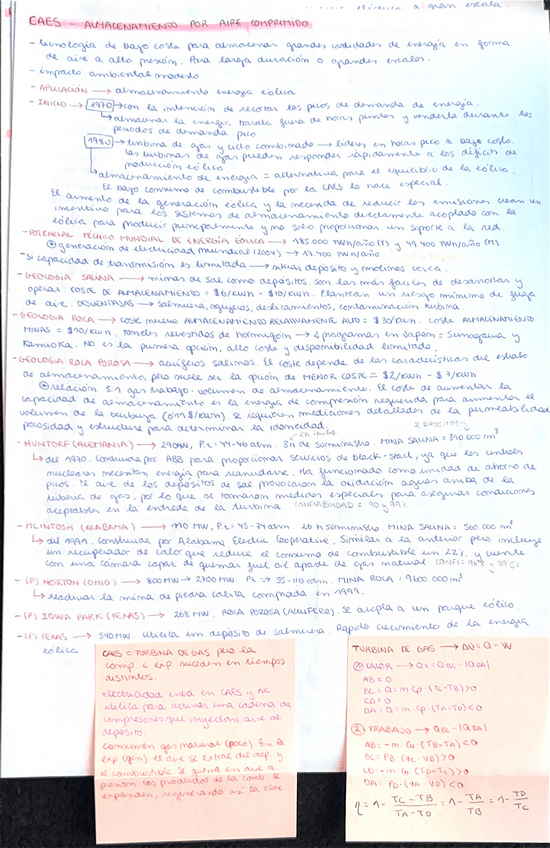 a gran escala.
CAES - ALMACENAMIENTO POR AIRE COMPRIMIDO
- tecnología de bajo coste para almacenar grandes cantidades de energía en forma
de aire a alta presión. Para larga duración o grandes escalas.
- impacto ambiental modesto.
- APLICACIÓN → almacenamiento energía eólica
- INICIO → 1970 → con la intención de recortar los picos de demanda de energía.
→ almacenar la energía barata fuera de horas punta y venderla durante los
periodos de demanda pico.
1980 → turbina de gas y ciclo combinado → líderes en horas pico a bajo costo.
las turbinas de gas pueden responder rápidamente a los déficits de
producción eólica
→ almacenamiento de energía = alternativa para el equilibrio de la eólica.
El bajo consumo de combustible por la CAES lo hace especial.
El aumento de la generación eólica y la necesidad de reducir las emisiones crean un
incentivo para los sistemas de almacenamiento directamente acoplado con la
eólica para producir principalmente y no solo proporcionar un soporte a la red.
- POTENCIAL TÉCNICO MUNDIAL DE ENERGÍA EÓLICA → 185.000 TWh/año (T) y 49.400 TWh/año (M)
generación de electricidad mundial (2004) → 17.400 TWh/año
- Si capacidad de transmisión es limitada → depósito y molinos cerca.
- GEOLOGÍA SALINA → minas de sal como depósitos. son las más fáciles de desarrollar y
operar. COSTE DE ALMACENAMIENTO = $6/KWh - $10/KWh. Plantean un riesgo mínimo de fuga
de aire. DESVENTAJAS → salmuera, agujeros, deslizamientos, contaminación turbina.
- GEOLOGÍA ROCA → coste nueva ALMACENAMIENTO RELATIVAMENTE ALTO = $30/KWh. coste ALMACENAMIENTO
MINAS = $10/KWh. túneles revestidos de hormigón → 2 programas en Japón = Sunagawa y
Kamioka. NO es la primera opción, alto coste y disponibilidad limitada.
- GEOLOGÍA ROCA POROSA → acuíferos salinos. El coste depende de las características del estrato
de almacenamiento, pero suele ser la opción de MENOR COSTE = $2/KWh - $7/KWh
relación gas trabajo - volumen de almacenamiento. El coste de aumentar la
capacidad de almacenamiento es la energía de compresión requerida para aumentar el
volumen de la burbuja (0'11$/KWh) se requieren mediciones detalladas de la permeabilidad
porosidad y estructura para determinar la idoneidad.
2h inicio 2 DEPÓSITOS
- HUNTORF (ALEMANIA) → 290MW, P.c = 44-46 atm. 3h de suministro. MINA SALINA = 310000 m³
→ del 1970. Construida por ABB para proporcionar servicios de black-start, ya que las centrales
nucleares necesitan energía para reanudarse. Ha funcionado como unidad de ahorro de
picos. El aire de los depósitos de sal provocaron la oxidación aguas arriba de la
turbina de gas, por lo que se tomaron medidas especiales para asegurar condiciones
aceptables en la entrada de la turbina CONFIABILIDAD = 90 y 99%.
- MCINTOSH (ALABAMA) → 110 MW, P.c = 45-74 atm. 26 h suministro. MINA SALINA = 560000 m³
→ del 1991. Construida por Alabama Electric Cooperative. Similar a la anterior pero incluye
un recuperador de calor que reduce el consumo de combustible un 22%, y cuenta
con una cámara capaz de quemar fuel oil aparte de gas natural.
- (P) NORTON (OHIO) → 800MW → 2700MW. Pc → 55-110 atm. MINA ROCA = 9600.000 m³
→ reactivar la mina de piedra caliza comprada en 1999.
- (P) IOWA PARK (TEXAS) → 268 MW. ROCA POROSA (ACUÍFERO). Se acopla a un parque eólico.
- (P) TEXAS → 540MW. utiliza un depósito de salmuera. Rápido crecimiento de la energía
eólica
CAES = TURBINA DE GAS pero la
comp. y exp. suceden en tiempos
distintos.
electricidad entra en CAES y se
utiliza para accionar una cadena de
compresores que inyectan aire al
depósito
consumen gas natural (poco). En la
exp (gen) el aire se extrae del dep. y
el combustible se quema en aire a
presión. Los productos de la comb. se
expanden, regenerando así la elec
TURBINA DE GAS → ΔU = Q - W
① CALOR → QT = QBC - |QDA|
AB = 0
BC = Q = m·cp·(TC-TB) > 0
CD = 0
DA = Q = m·cp·(TA-TD) < 0
② TRABAJO → QBC - |QDA|
AB = -m·cv·(TB-TA) < 0
BC = PB·(VC-VB) > 0
CD = -m·cv·(TD-TC) > 0
DA = PD·(VA-VD) < 0
η = 1 - (TC - TB)/(TA - TD) = 1 - TA/TB = 1 - TD/TC